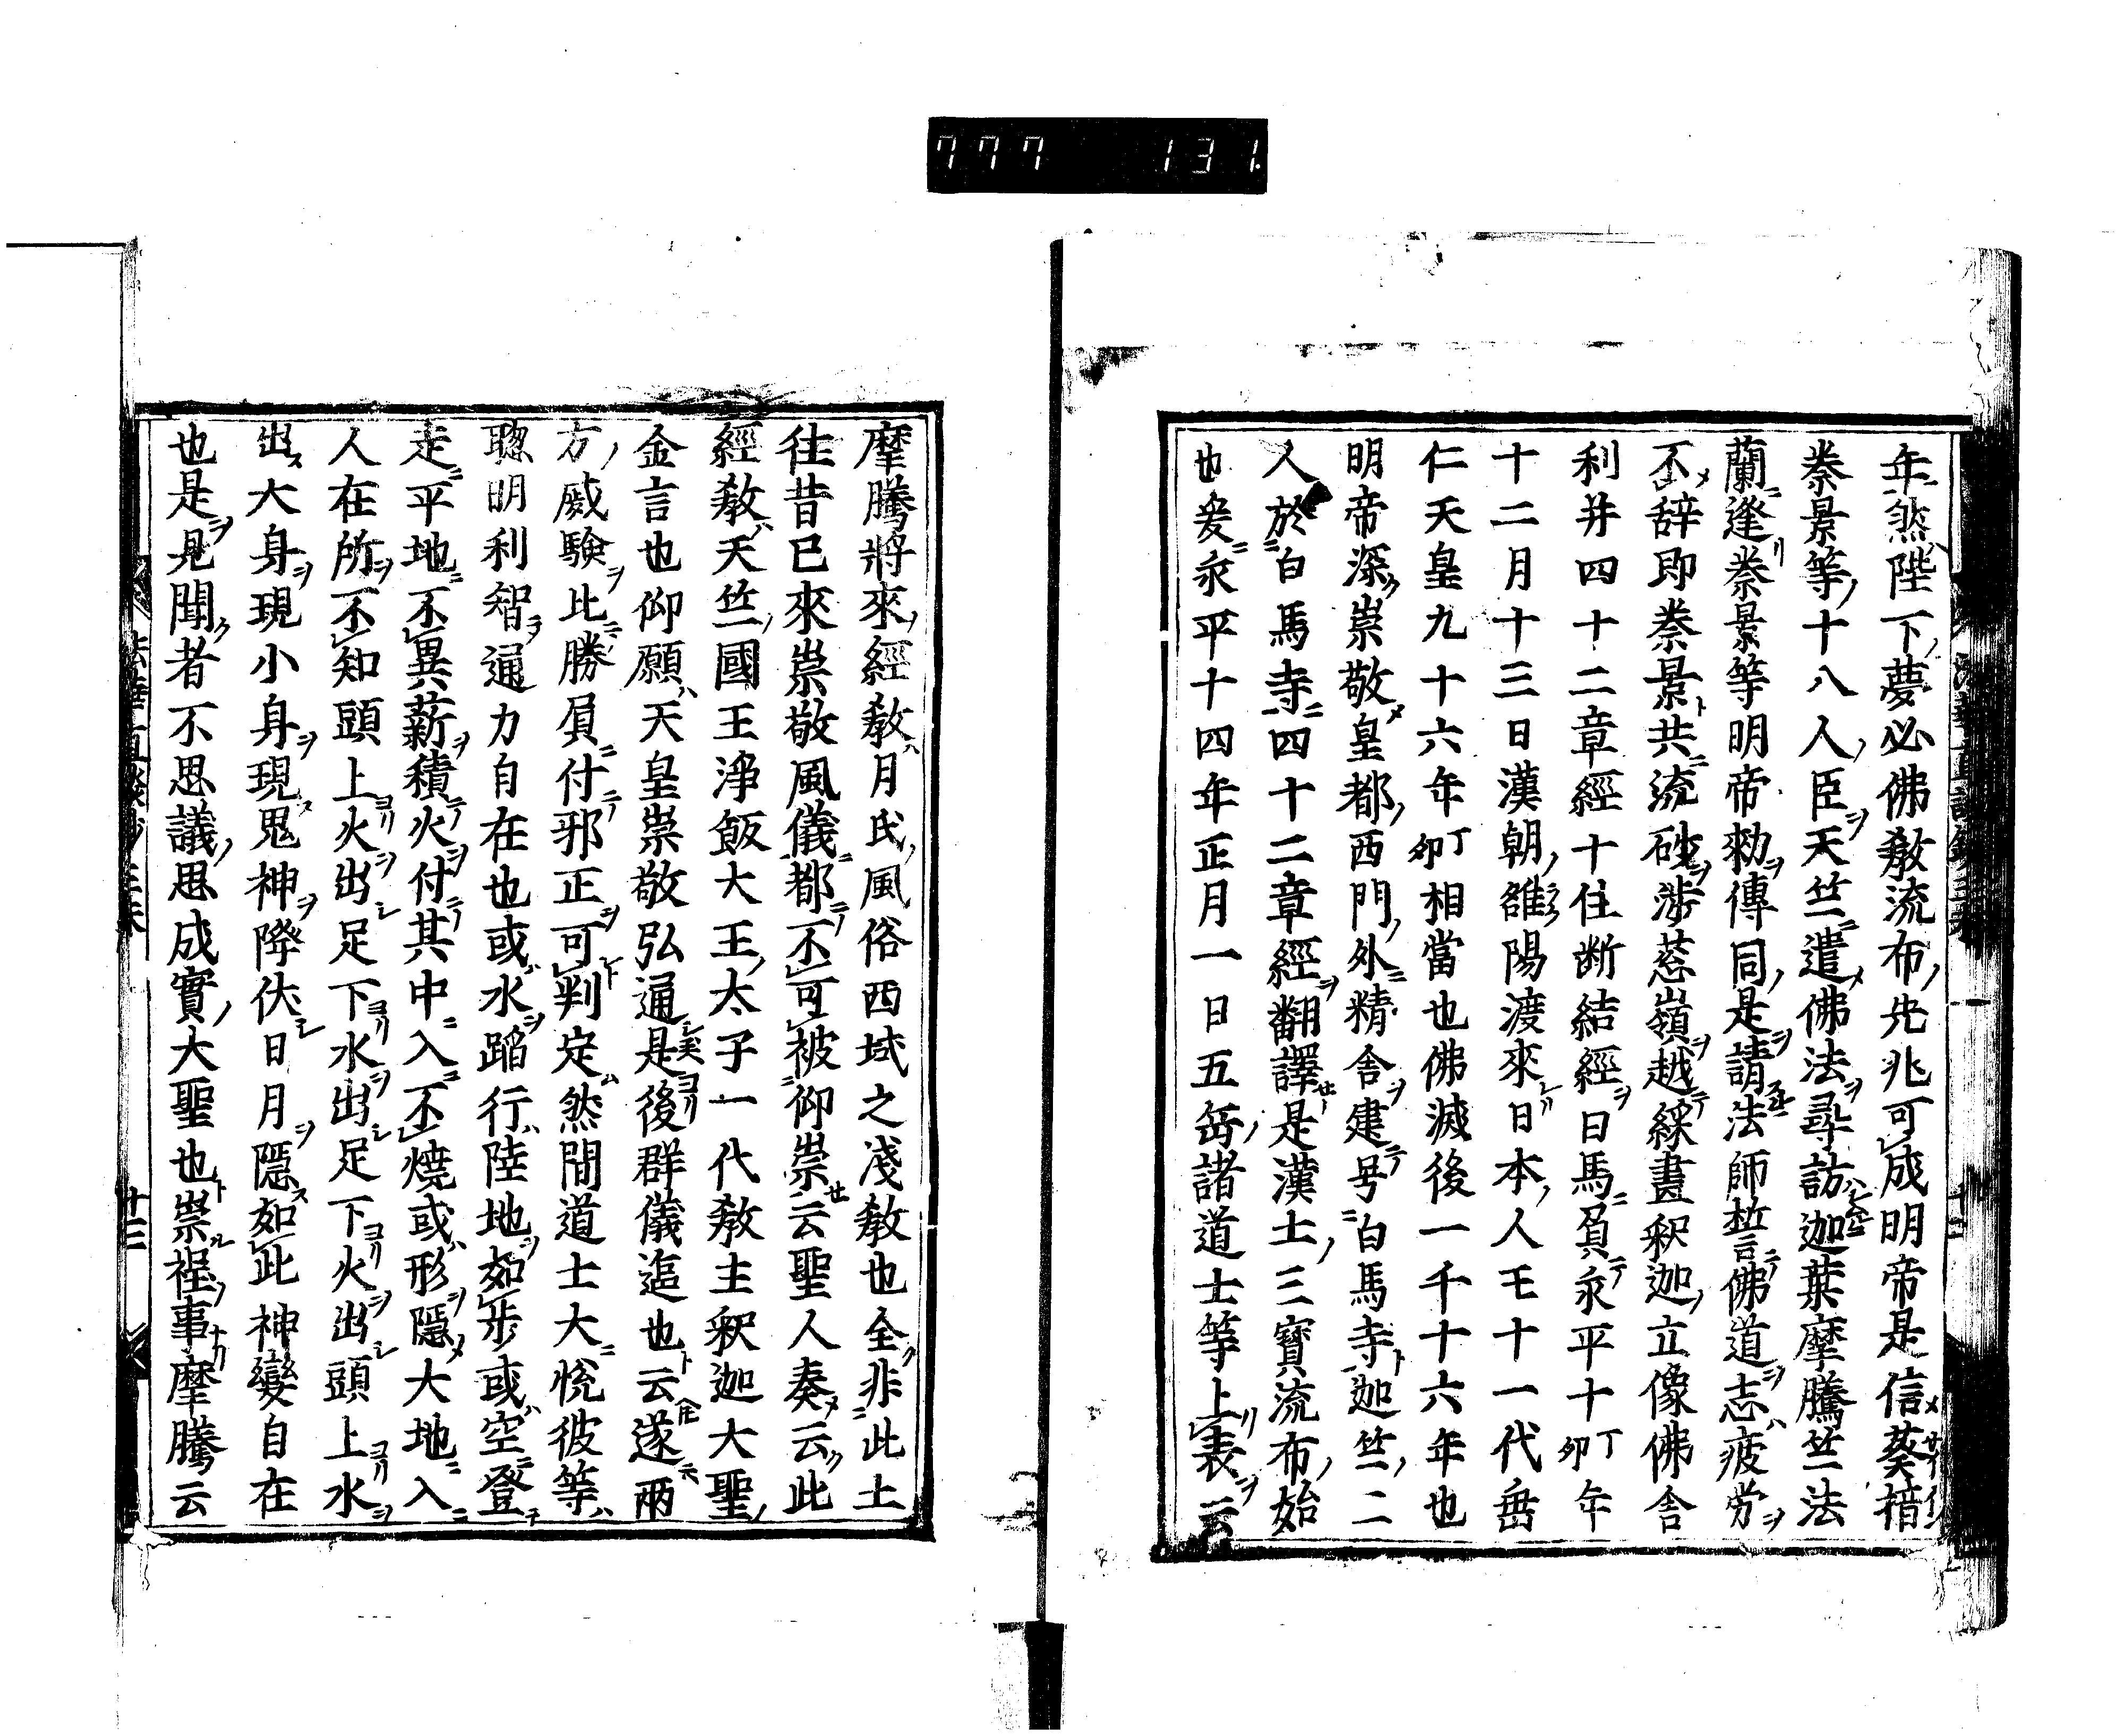 777 131
年然陛下夢必佛教流布先兆可成明帝是信蔡揞
秦景等十八人臣天竺遣佛法尋訪迦葉摩騰竺法
蘭逢秦景等明帝勅傳同是請法師哲言佛道志疲労
不辞即秦景共流砂渉葱嶺越綵畫釈迦立像佛舎
利并四十二章經十住断結經日馬負永平十丁卯年
十二月十三日漢朝雒陽渡來日本人王十一代垂
仁天皇九十六年丁卯相當也佛滅後一千十六年也
明帝深崇敬皇都西門外精舎建号白馬寺迦竺二
人於白馬寺四十二章經翻譯是漢土三寶流布始
也爰永平十四年正月一日五岳諸道士等上表云
摩騰將來經教月氏風俗西域之淺教也全非此土
往昔已來崇敬風儀都不可被仰崇云聖人奏云此
經教天竺國王淨飯大王太子一代教主釈迦大聖
金言也仰願天皇崇敬弘通是後群儀區也云遂兩
方威驗比勝負付邪正可判定然間道士大悦彼等
聡明利智通力自在也或水蹈行陸地如歩或空登
走平地不異薪積火付其中入不燒或形隱大地入
人在所不知頭上火出足下水出足下火出頭上水
出大身現小身現鬼神降伏日月隱如此神變自在
也是見聞者不思議思成實大聖也崇裎事摩騰云
法華直談鈔三末 廿三